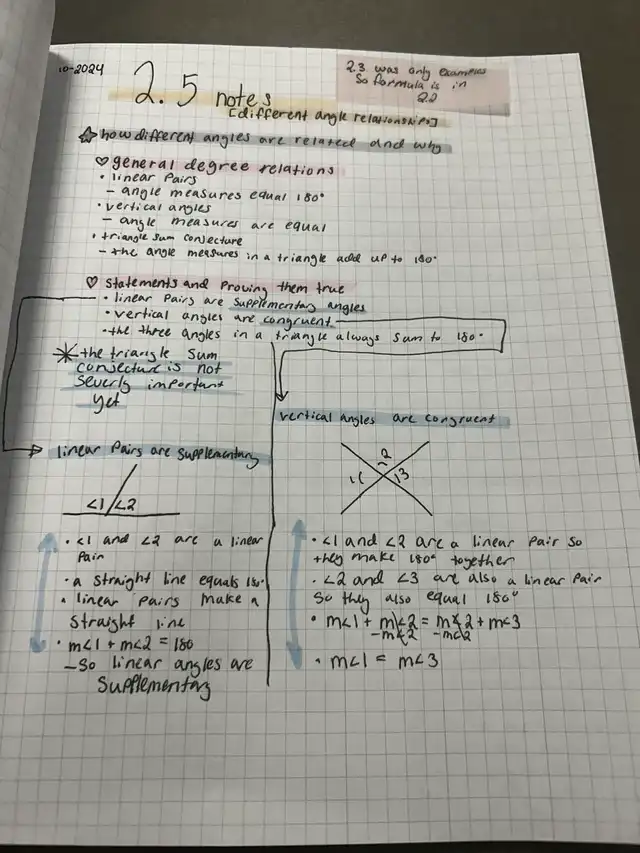 10-2024
2.3 was only examples
So formula is in
2.2
2.5 notes
[different angle relationships]
☆ how different angles are related and why
♡ general degree relations
• linear pairs
- angle measures equal 180°
• vertical angles
- angle measures are equal
• triangle sum conjecture
- the angle measures in a triangle add up to 180°
♡ statements and proving them true
• linear pairs are supplementary angles
• vertical angles are congruent
• the three angles in a triangle always sum to 180°
* the triangle sum
conjecture is not
severly important
yet
linear pairs are supplementary
∠1 ∠2
• ∠1 and ∠2 are a linear
pair
• a straight line equals 180°
• linear pairs make a
straight line
• m∠1 + m∠2 = 180
- So linear angles are
supplementary
vertical angles are congruent
2
1 3
• ∠1 and ∠2 are a linear pair so
they make 180° together
• ∠2 and ∠3 are also a linear pair
so they also equal 180°
• m∠1 + m∠2 = m∠2 + m∠3
-m∠2 -m∠2
• m∠1 = m∠3